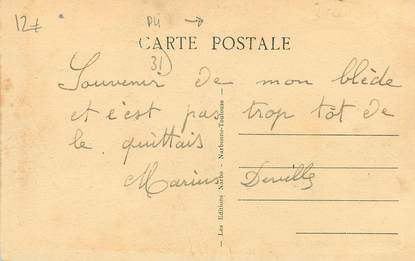 12 +
D4 →
CARTE POSTALE
31
Souvenir de mon blède
et c'est pas trop tôt de
le quittais
Marius Deville
— Les Editions Narbo - Narbonne-Toulouse —